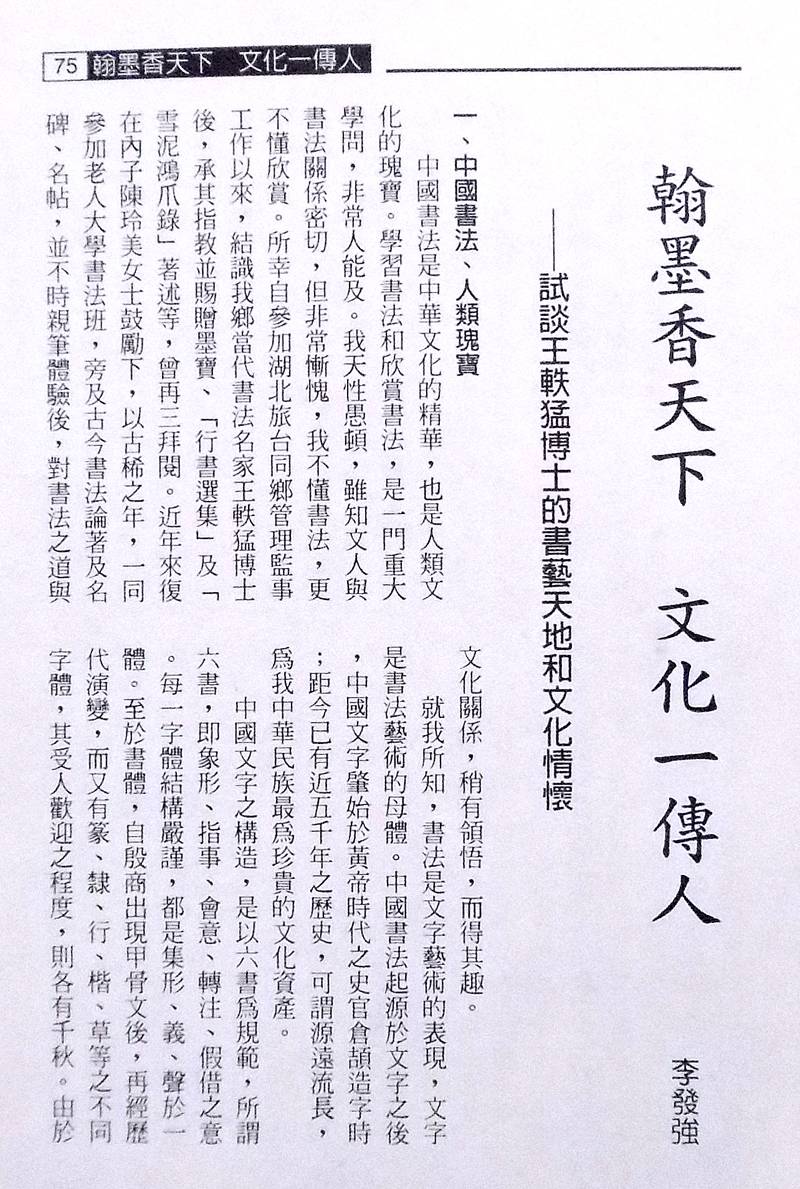 75 翰墨香天下　文化一傳人
翰墨香天下　文化一傳人
李發強
——試談王軼猛博士的書藝天地和文化情懷
一、中國書法、人類瑰寶
中國書法是中華文化的精華，也是人類文
化的瑰寶。學習書法和欣賞書法，是一門重大
學問，非常人能及。我天性愚頓，雖知文人與
書法關係密切，但非常慚愧，我不懂書法，更
不懂欣賞。所幸自參加湖北旅台同鄉管理監事
工作以來，結識我鄉當代書法名家王軼猛博士
後，承其指教並賜贈墨寶、「行書選集」及「
雪泥鴻爪錄」著述等，曾再三拜閱。近年來復
在內子陳玲美女士鼓勵下，以古稀之年，一同
參加老人大學書法班，旁及古今書法論著及名
碑、名帖，並不時親筆體驗後，對書法之道與
文化關係，稍有領悟，而得其趣。
就我所知，書法是文字藝術的表現，文字
是書法藝術的母體。中國書法起源於文字之後
，中國文字肇始於黃帝時代之史官倉頡造字時
；距今已有近五千年之歷史，可謂源遠流長，
爲我中華民族最爲珍貴的文化資產。
中國文字之構造，是以六書爲規範，所謂
六書，即象形、指事、會意、轉注、假借之意
。每一字體結構嚴謹，都是集形、義、聲於一
體。至於書體，自殷商出現甲骨文後，再經歷
代演變，而又有篆、隸、行、楷、草等之不同
字體，其受人歡迎之程度，則各有千秋。由於